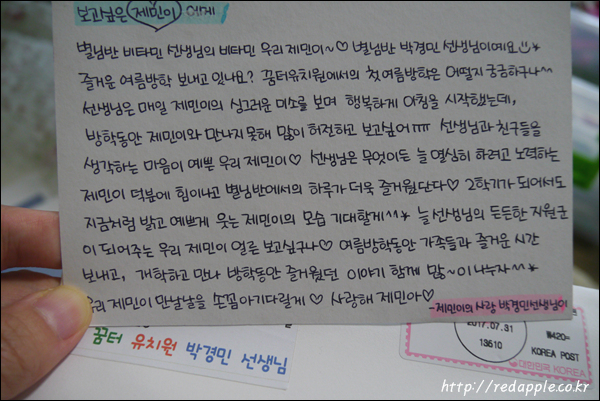 보고싶은 제민이 에게
별님반 비타민 선생님의 비타민 우리 제민이~♡ 별님반 박경민 선생님이예요☺*
즐거운 여름방학 보내고 있나요? 꿈터유치원에서의 첫 여름방학은 어떨지 궁금하구나^^
선생님은 매일 제민이의 싱그러운 미소를 보며 행복하게 아침을 시작했는데,
방학동안 제민이와 만나지 못해 많이 허전하고 보고싶어ㅠㅠ 선생님과 친구들을
생각하는 마음이 예쁜 우리 제민이♡ 선생님은 무엇이든 늘 열심히 하려고 노력하는
제민이 덕분에 힘이나고 별님반에서의 하루가 더욱 즐거웠단다♡ 2학기가 되어서도
지금처럼 밝고 예쁘게 웃는 제민이의 모습 기대할게^^* 늘 선생님의 든든한 지원군
이 되어주는 우리 제민이 얼른 보고싶구나♡ 여름방학동안 가족들과 즐거운 시간
보내고, 개학하고 만나 방학동안 즐거웠던 이야기 함께 많~이 나누자^^*
우리 제민이 만날날을 손꼽아기다릴게♡ 사랑해 제민아♡
-제민이의 사랑 박경민선생님이
꿈터 유치원 박경민 선생님
2017.07.31
13610
₩420
KOREA POST
대한민국 KOREA
http://redapple.co.kr